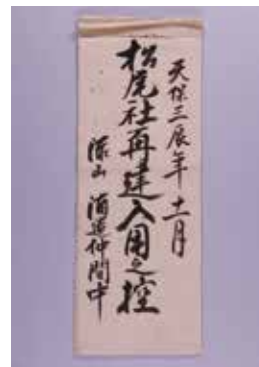 天保三辰年十一月
松尾社再建入用之控
篠山 酒造仲間中